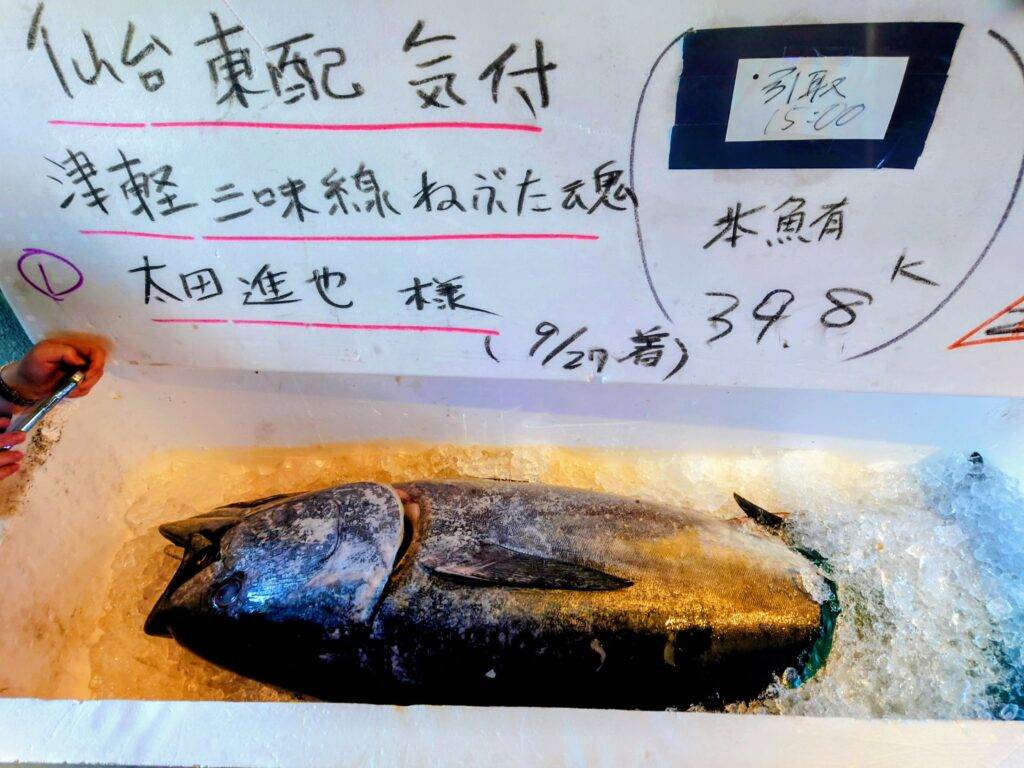 仙台東配 気付
津軽三味線ねぶた魂
① 太田進也 様
(9/27着)
・引取
15:00
氷魚有
39.8K